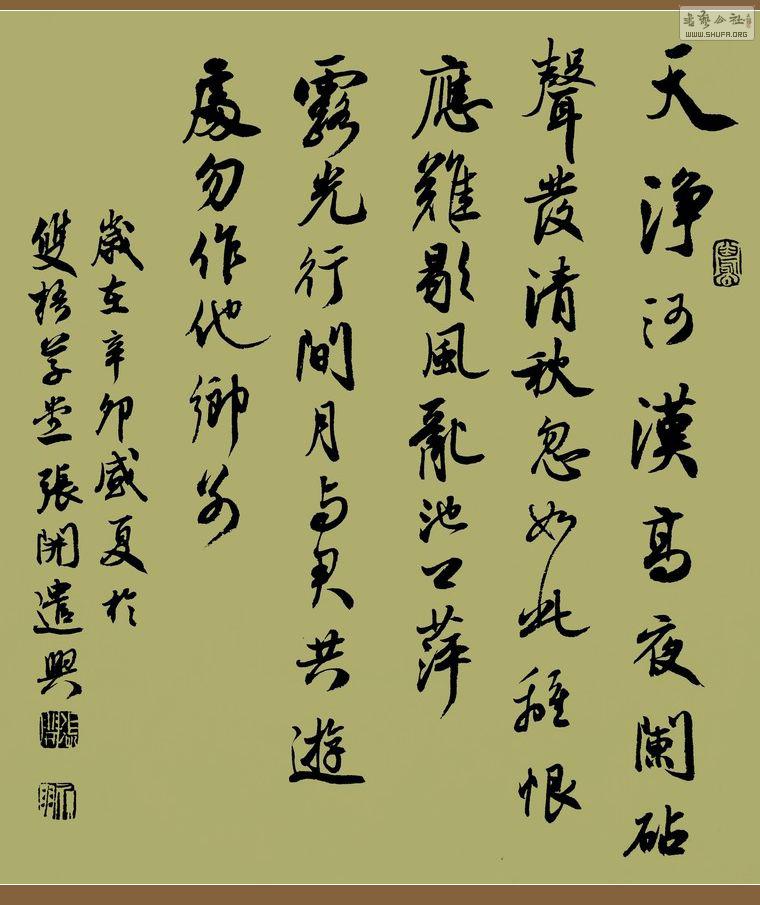 天淨河漢高夜闌砧
聲發清秋忽如此離恨
應難歇風亂池萍
露光行間月与君共遊
處勿作他鄉別
歲在辛卯盛夏於
雙梧草堂張開遣興
书艺公社
WWW.SHUFA.ORG